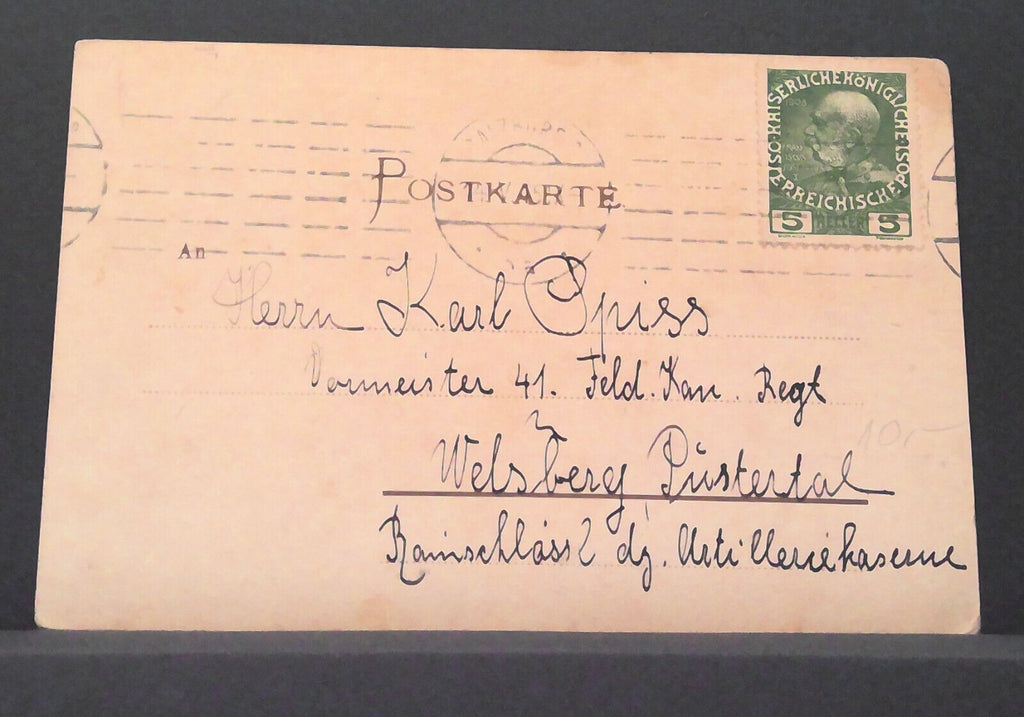 POSTKARTE
KAISERLICHE KÖNIGLICHE ÖSTERREICHISCHE POST
1908
5 HELLER 5
An
Herrn Karl Spiss
Vormeister 41. Feld. Kan. Regt
10.-
Welsberg Pustertal
dz. Artilleriekaserne